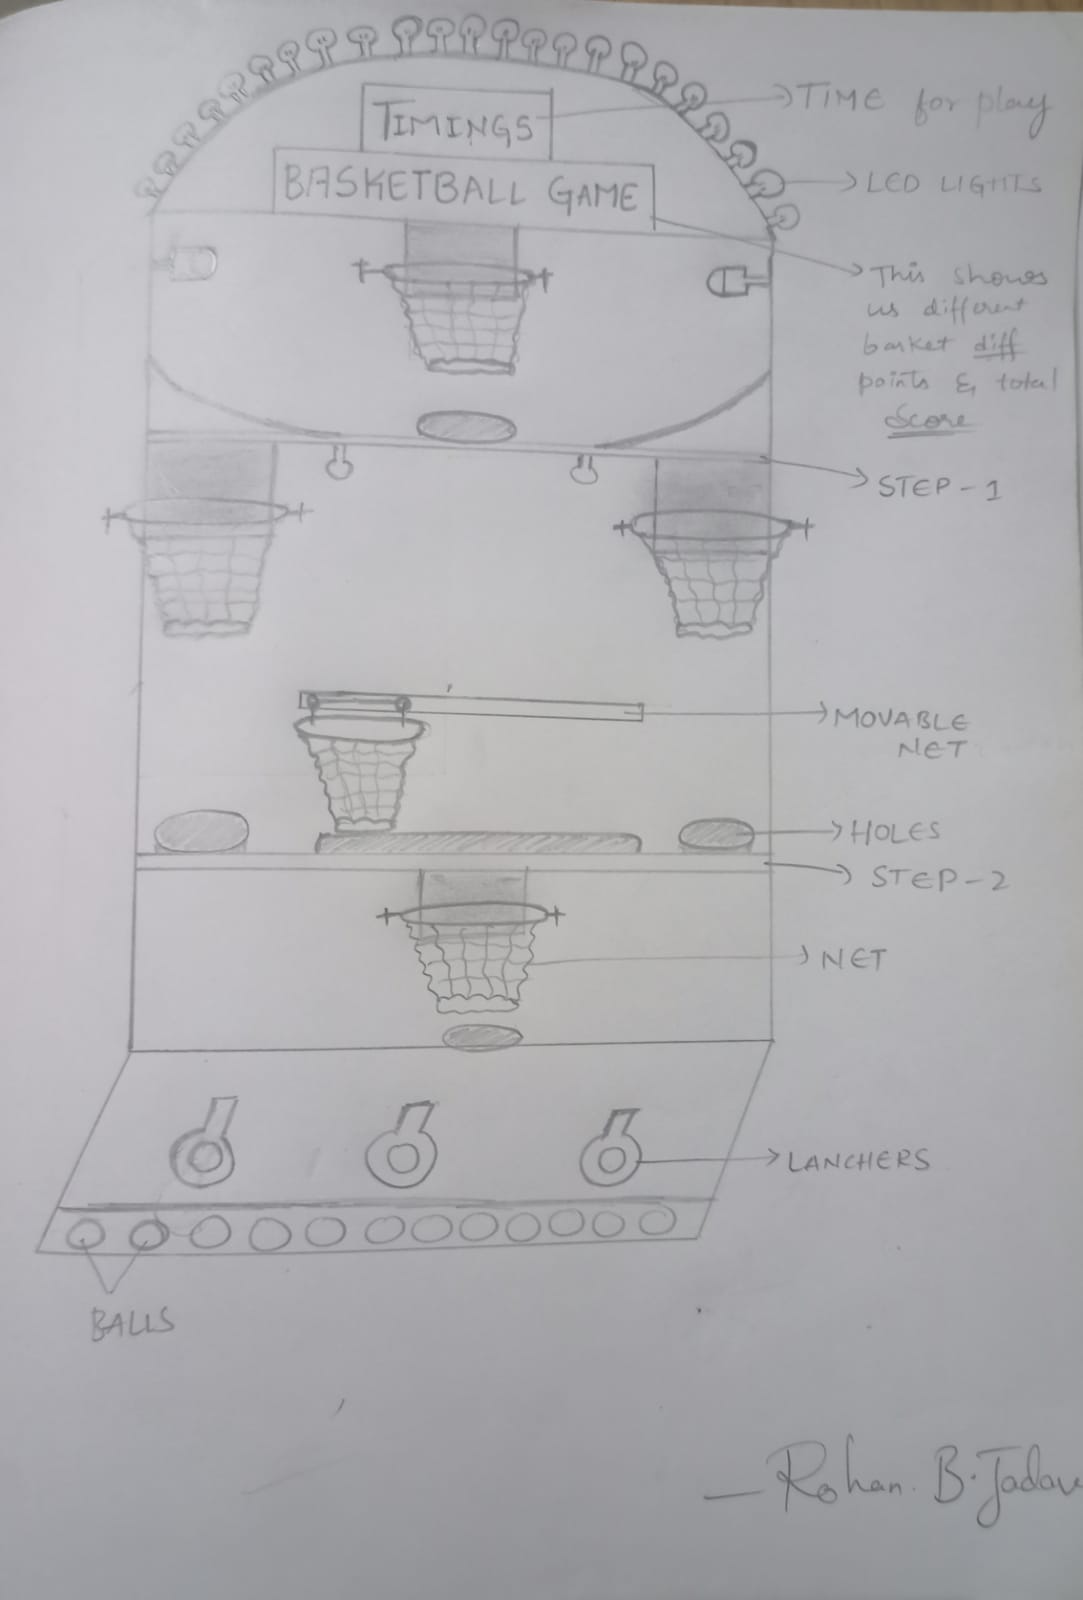 TIMINGS
TIME for play
BASKETBALL GAME
LED LIGHTS
This shows
us different
basket diff
points & total
Score
STEP-1
MOVABLE
NET
HOLES
STEP-2
NET
LANCHERS
BALLS
— Rohan. B. Jadav